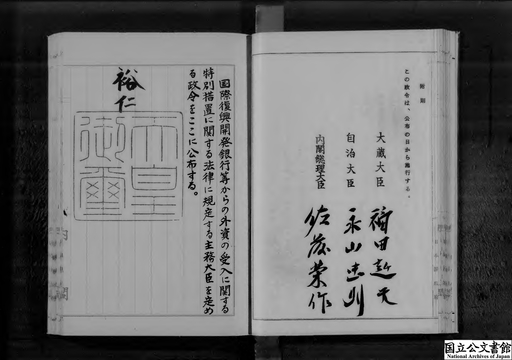 附則
この政令は、公布の日から施行する。
大蔵大臣 福田赳夫
自治大臣 永山忠則
内閣総理大臣 佐藤榮作
国際復興開発銀行等からの外資の受入に関する
特別措置に関する法律に規定する主務大臣を定め
る政令をここに公布する。
裕仁
天皇
御璽
国立公文書館
National Archives of Japan